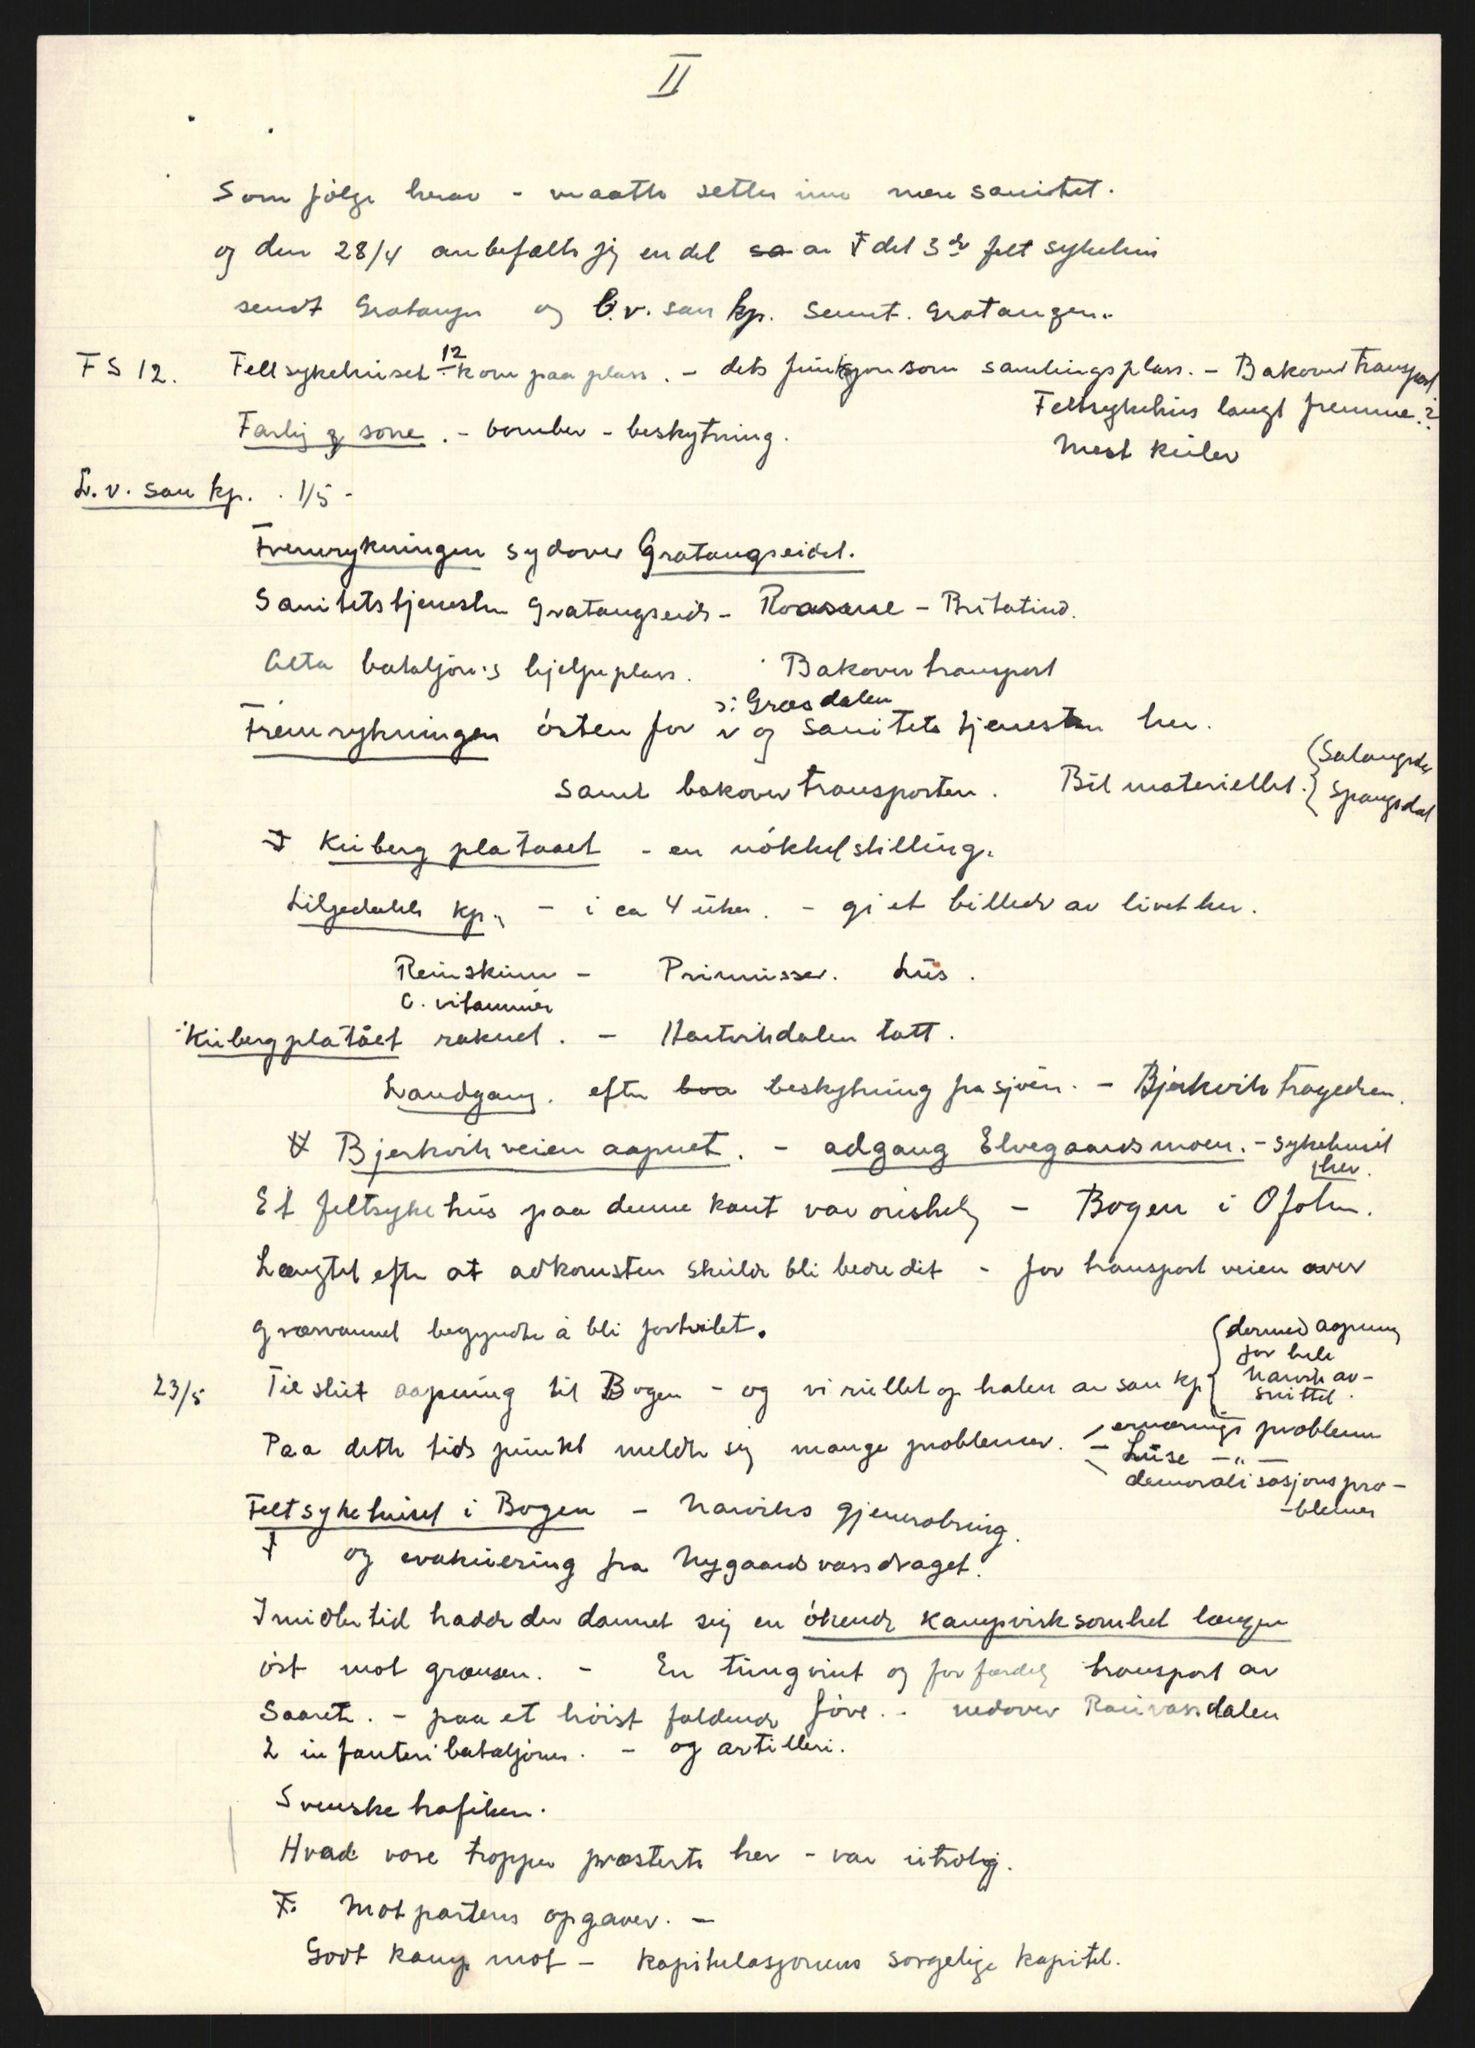 II
Som følge herav - maatte settes inn mere sanitet.
og den 28/4 anbefalte jeg en del sa av det 3de felt sykehus
sendt Gratangen og l.v. san kp. samt. Gratangen.
FS 12. Feltsykehuset 12 kom paa plass. - dets funksjon som samlingsplass. - Bakover transport
Feltsykehus langt fremme.?
Farlig sone. - bomber - beskytning.
Mest kuler
L.v. san kp. 1/5 -
Fremrykningen sydover Gratangseidet.
Sanitetstjenesten Gratangseidet - Roasme - Britatind.
Alta bataljon's hjelpeplass. Bakover transport
ɔ: Græsdalen
Fremrykningen østen for v og Sanitetstjenesten her.
samt bakover transporten. Bil materiellet. { Salangsdal
Spangsdal
Kuberg plataaet - en nøkkelstilling.
Liljedahls kp. - i ca 4 uker. - gi et billede av livet her.
Reinskinn - Primusser. Lus.
C. vitaminer
Kuberg platået raknet. - Hartvikdalen tatt.
Landgang. efter beskytning fra sjøen. - Bjerkvik tragedien.
Bjerkvik veien aapnet. - adgang Elvegaardsmoen. - sykehuset
her.
Et feltsykehus paa denne kant var ønskelig - Bogen i Ofoten.
Længtet efter at adkomsten skulde bli bedredet - for transport veien over
græsvannet begyndte å bli fortvilet.
23/5 Til slut aapning til Bogen - og vi rullet op halen av san kp { dermed aapning
for hele
Narvik av-
snittet.
Paa dette tidspunkt meldte sig mange problemer. - ernærings problemer
- Luse - " -
demoralisasjonspro-
-blemer
Feltsykehuset i Bogen - Narviks gjenerobring.
og evakuering fra Nygaardsvassdraget.
Imidlertid hadde der dannet sig en økende kampvirksomhet længer
øst mot grænsen. - En tungvint og forfærdelig transport av
Saarete. - paa et høist faldende føre. - nedover Rauvassdalen
2 infanteribataljoner. - og artilleri.
Svenske trafiken.
Hvad vore tropper præsterte her - var utrolig.
Motpartens opgaver. -
Godt kamp mot - kapitulasjonens sørgelige kapitel.